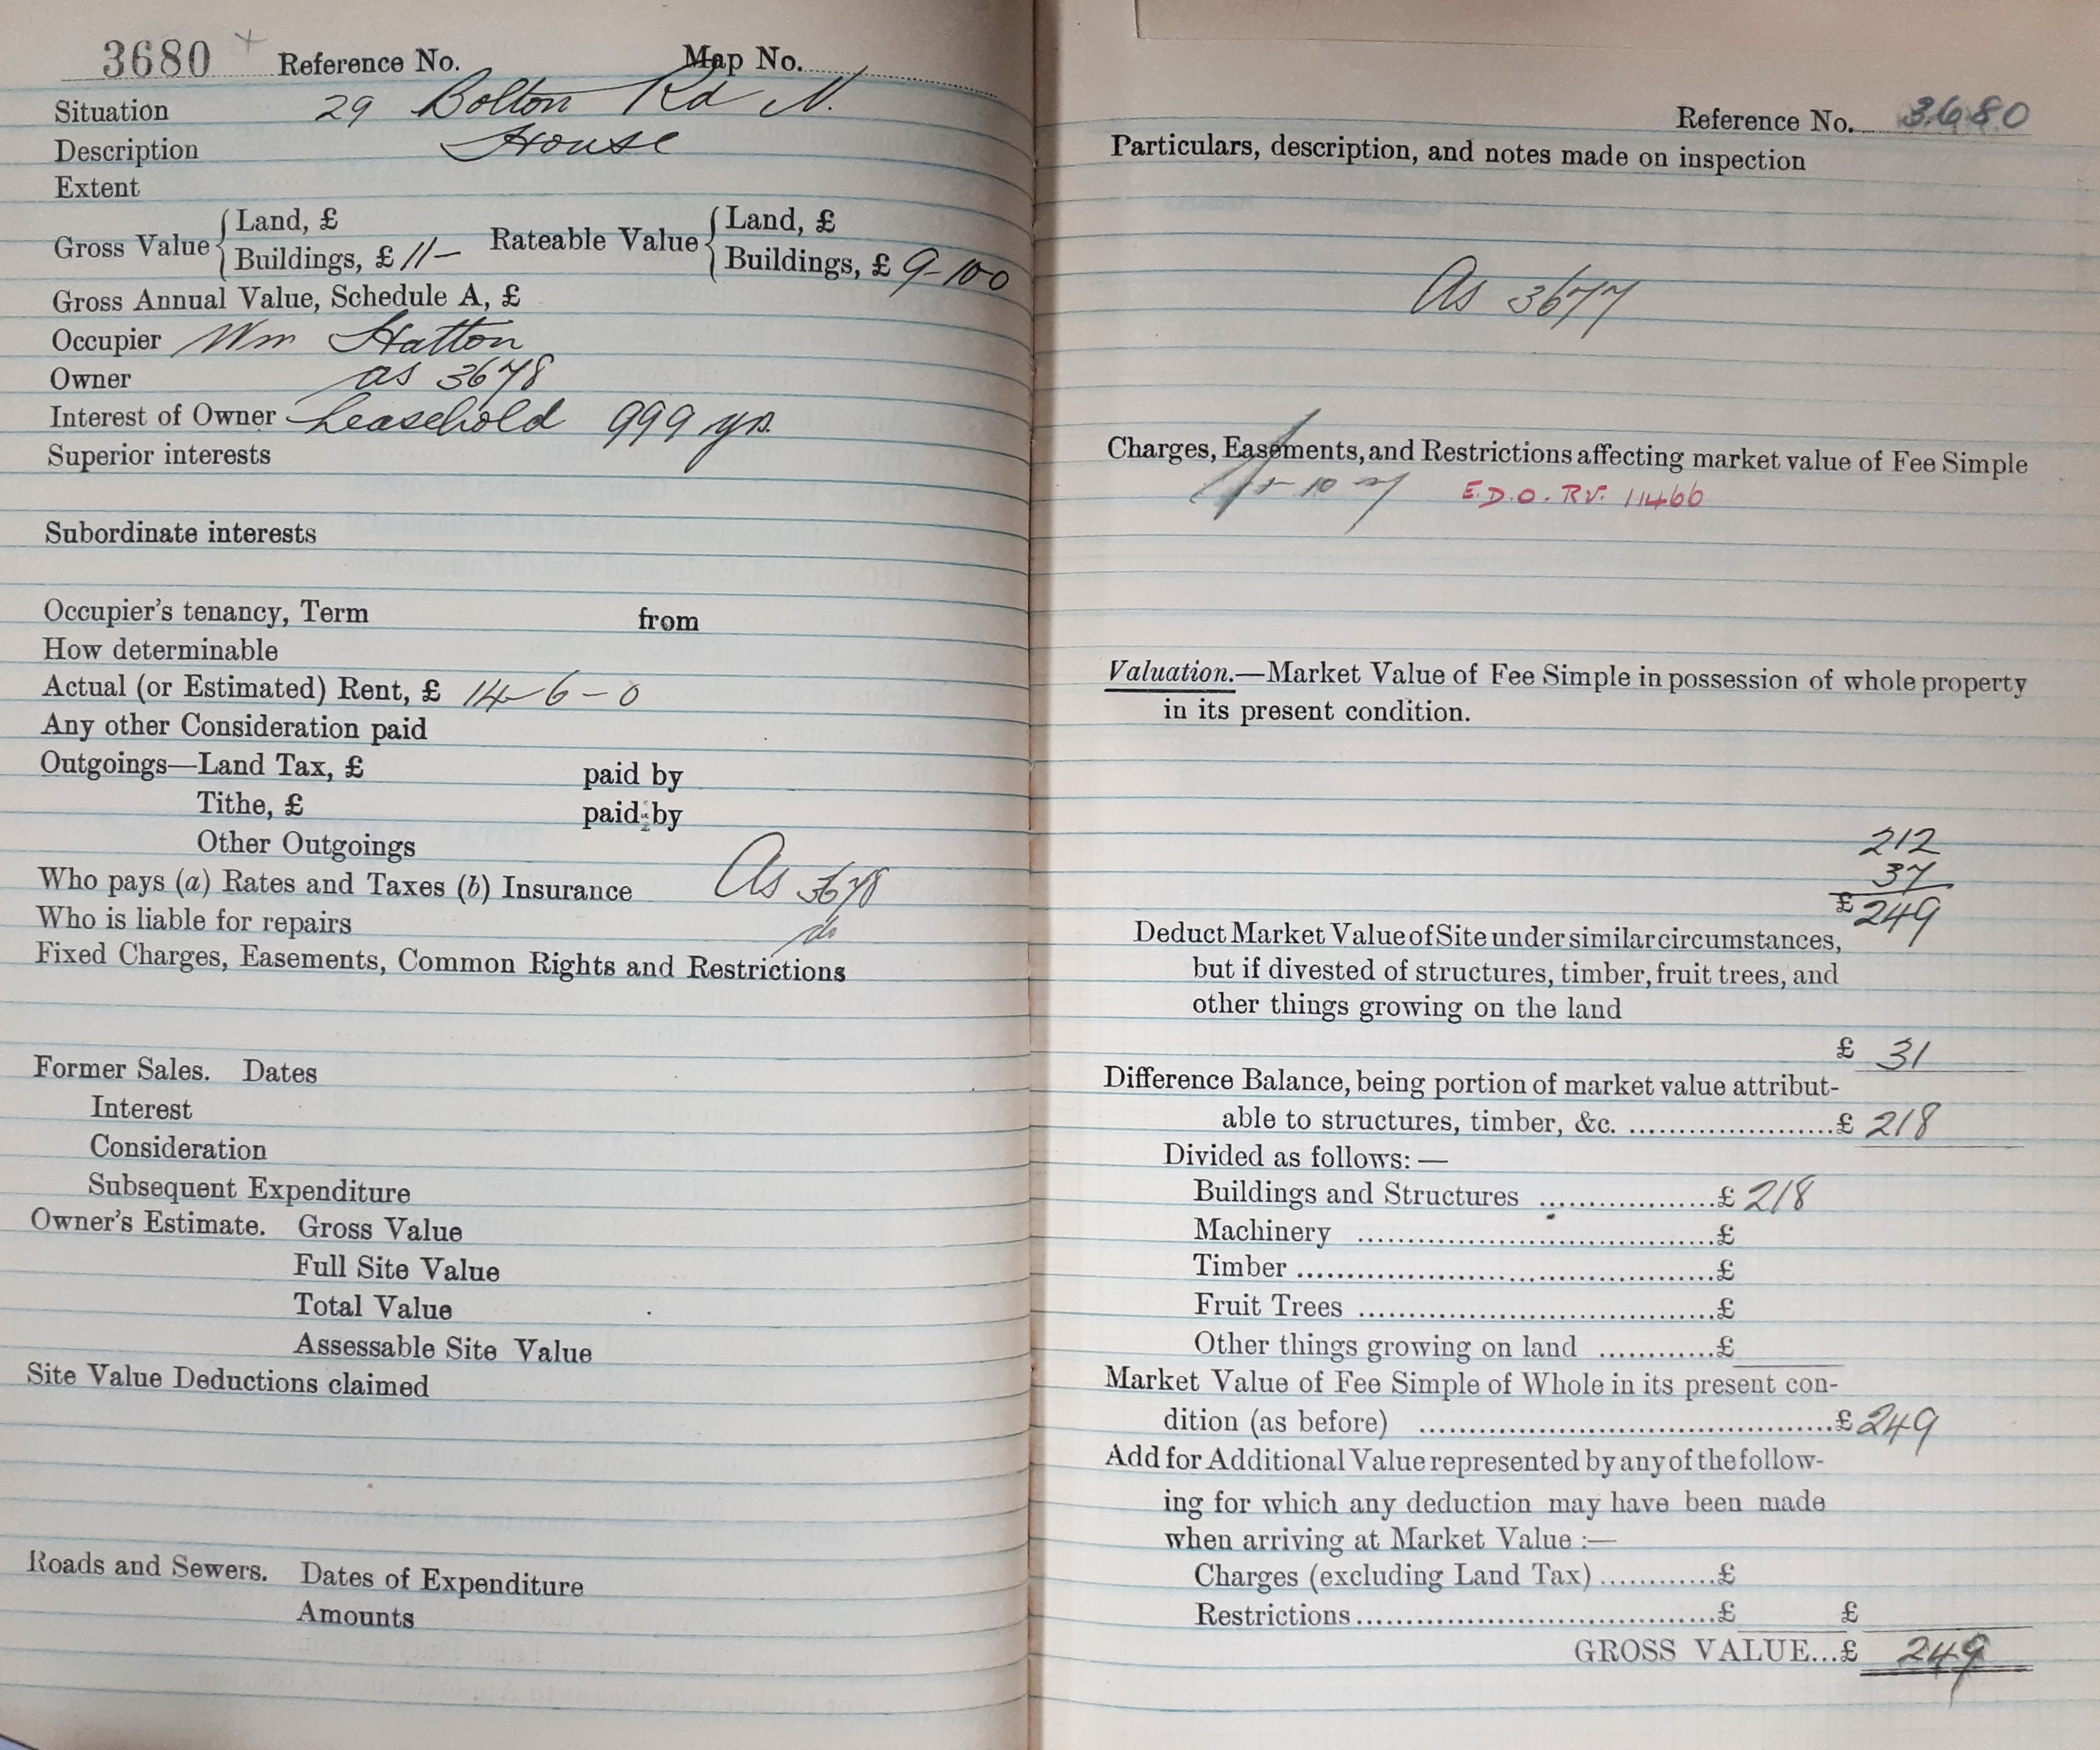 3680 Reference No. Map No.
Situation 29 Bolton Rd N.
Description House
Extent
Gross Value { Land, £ Rateable Value { Land, £
Buildings, £ 11- Buildings, £ 9-10-0
Gross Annual Value, Schedule A, £
Occupier Wm Hatton
Owner as 3678
Interest of Owner Leasehold 999 yrs.
Superior interests
Subordinate interests
Occupier's tenancy, Term from
How determinable
Actual (or Estimated) Rent, £ 14-6-0
Any other Consideration paid
Outgoings—Land Tax, £ paid by
Tithe, £ paid by
Other Outgoings
Who pays (a) Rates and Taxes (b) Insurance As 3678
Who is liable for repairs do
Fixed Charges, Easements, Common Rights and Restrictions
Former Sales. Dates
Interest
Consideration
Subsequent Expenditure
Owner's Estimate. Gross Value
Full Site Value
Total Value
Assessable Site Value
Site Value Deductions claimed
Roads and Sewers. Dates of Expenditure
Amounts
Reference No. 3680
Particulars, description, and notes made on inspection
As 3677
Charges, Easements, and Restrictions affecting market value of Fee Simple
E.D.O. RV. 11466
Valuation.—Market Value of Fee Simple in possession of whole property
in its present condition.
212
37
£ 249
Deduct Market Value of Site under similar circumstances,
but if divested of structures, timber, fruit trees, and
other things growing on the land
£ 31
Difference Balance, being portion of market value attribut-
able to structures, timber, &c. ......................£ 218
Divided as follows:—
Buildings and Structures ...................£ 218
Machinery ......................................£
Timber ............................................£
Fruit Trees ......................................£
Other things growing on land ............£
Market Value of Fee Simple of Whole in its present con-
dition (as before) ............................................£ 249
Add for Additional Value represented by any of the follow-
ing for which any deduction may have been made
when arriving at Market Value :—
Charges (excluding Land Tax) ............£
Restrictions......................................£ £
GROSS VALUE...£ 249